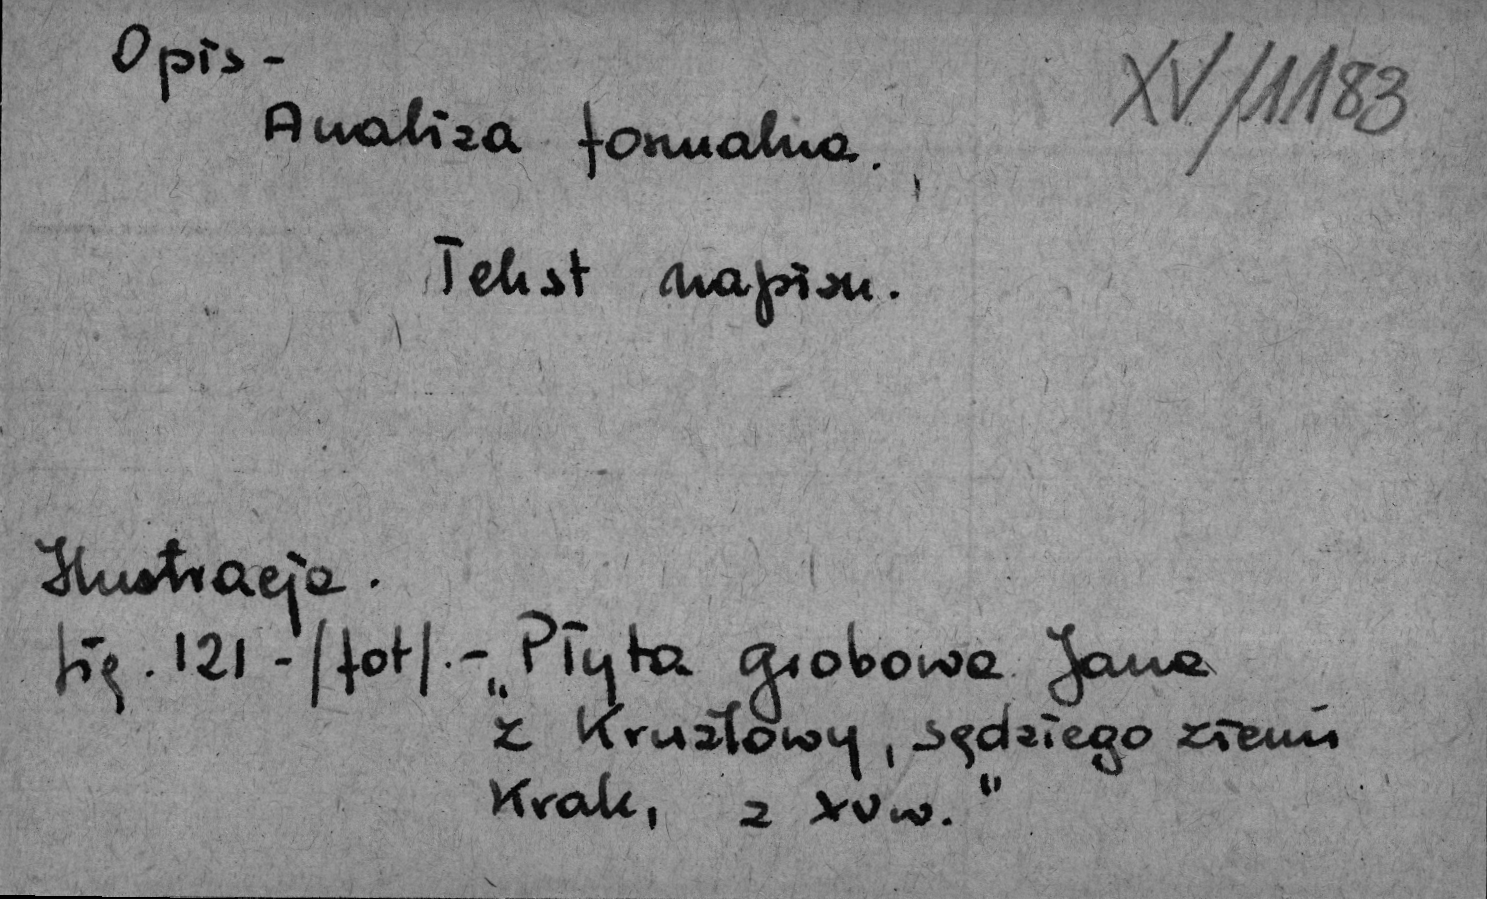 Opis -
XV/1183
Analiza formalna.
Tekst napisu.
Ilustracje.
fig. 121 - /fot/. - „Płyta grobowa Jana
z Krużlowy, sędziego ziemi
Krak, z XV w."